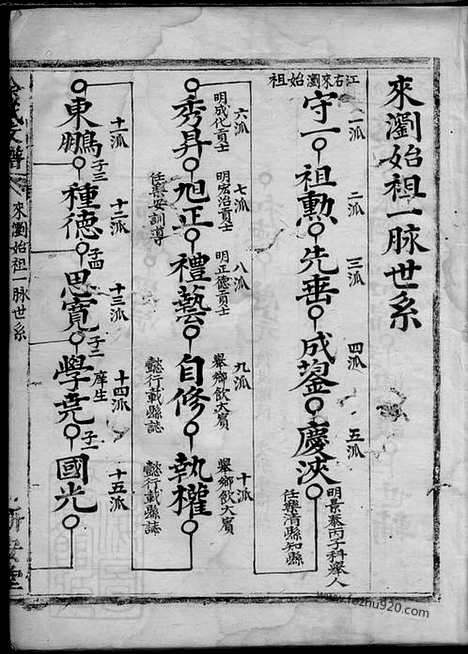 來瀏始祖一脉世系
江右來瀏始祖
守一 一派
祖勲 二派
先垂 三派
成鋆 四派
慶浹 五派
明景泰丙子科舉人
任樂清縣知縣
秀昇 六派
明成化貢士
旭正 七派
明宏治貢士
任樂安訓導
禮藝 八派
明正德貢士
自修 九派
舉鄉飲大賓
懿行載縣誌
執權 十派
舉鄉飲大賓
懿行載縣誌
東鵬 十一派
子三
種德 十二派
子四
思寬 十三派
子二
學堯 十四派
庠生
子一
國光 十五派
來瀏始祖一脉世系
www.fozhu920.com